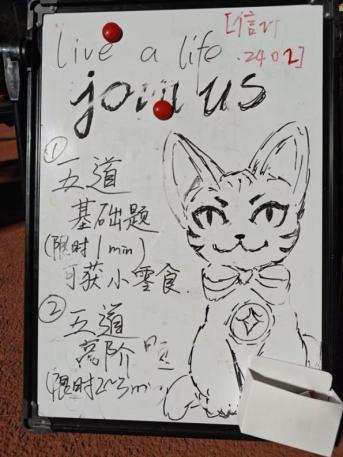 live a life
[信计
2402]
join us
①
五道
基础题
(限时1min)
可获小零食.
②
五道
高阶题
(限时2~3m